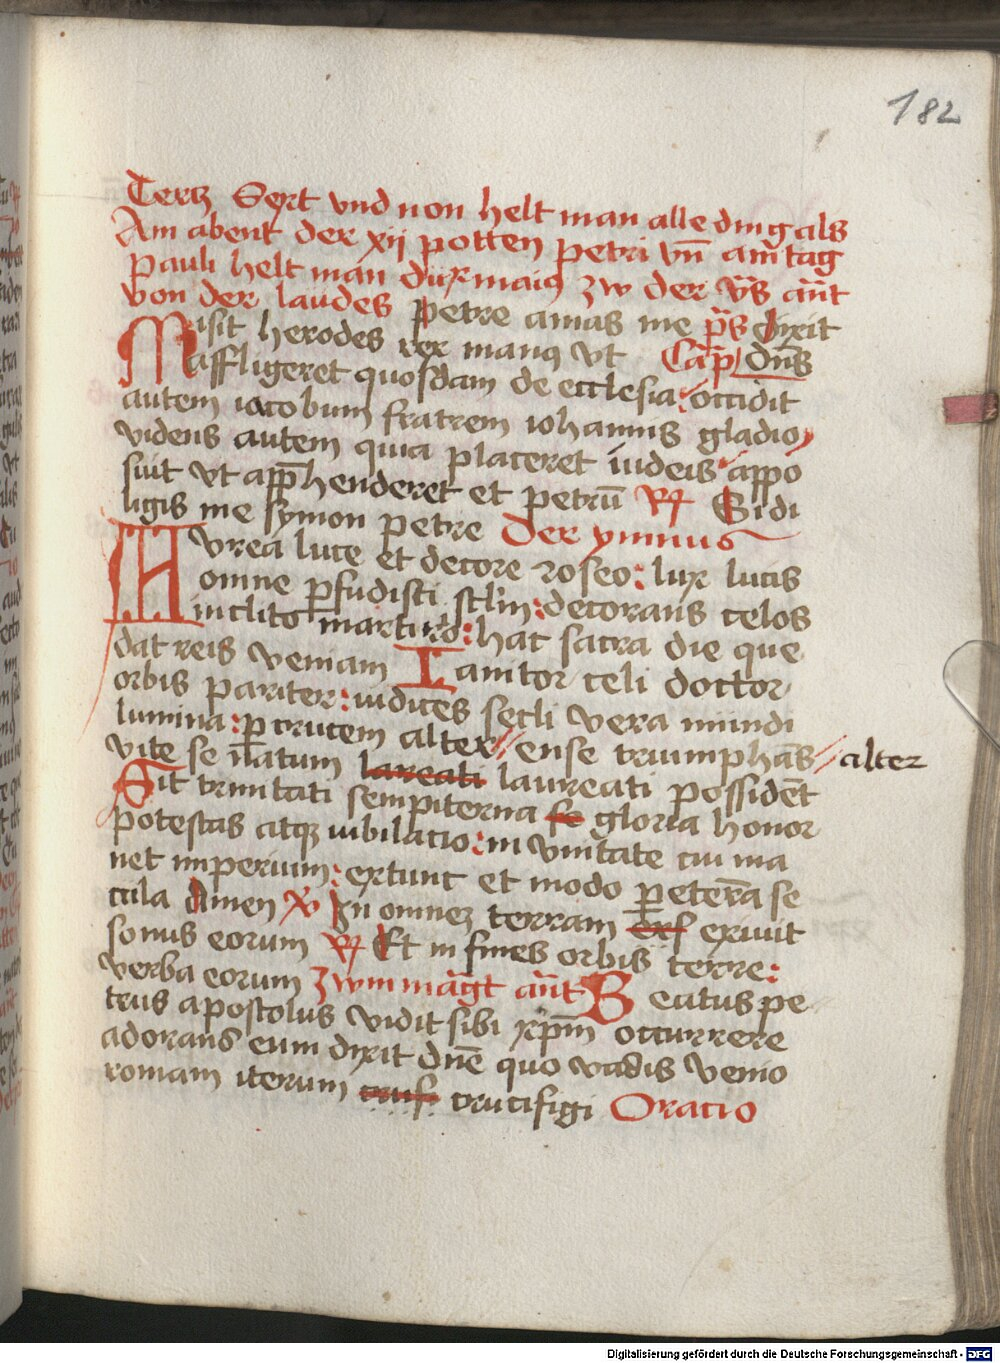 182
Tertz Sext vnd non helt man alle ding als
Am abent der xij potten petri vn̄ am tag
pauli helt man durmaig zw der v̄s ān̄t
von der laudes petre amas me p̄s dixit
Misit herodes rex manꝯ vt Cap̄ dn̄s
affligeret quosdam de ecclesia: occidit
autem iacobum fratrem iohannis gladio
videns autem quia placeret iudeis appo
suit vt app̄henderet et petrū R Si di
ligis me symon petre Der ymnus
Aurea luce et decore roseo: lux lucis
omne pfudisti sclm̄: decorans celos
inclito martirio: hac sacra die que
dat reis veniam Ianitor celi doctor
orbis pariter: iudices secli vera mundi
lumina: p crucem alter // ense triumphās // alter
vite senatum laureati laureati possidēt
Sit trinitati sempiterna se gloria honor
potestas atqꝫ iubilacio: in vnitate cui ma
net imperium: extunc et modo p eterā se
cula Amen V In omnez terram exs exiuit
sonus eorum R Et in fines orbis terre:
verba eorum zwm māgt ān̄t Beatus pe
trus apostolus vidit sibi xp̄m occurrere
adorans eum dixit dn̄e quo vadis venio
romam iterum crusi crucifigi Oracio
Digitalisierung gefördert durch die Deutsche Forschungsgemeinschaft - DFG